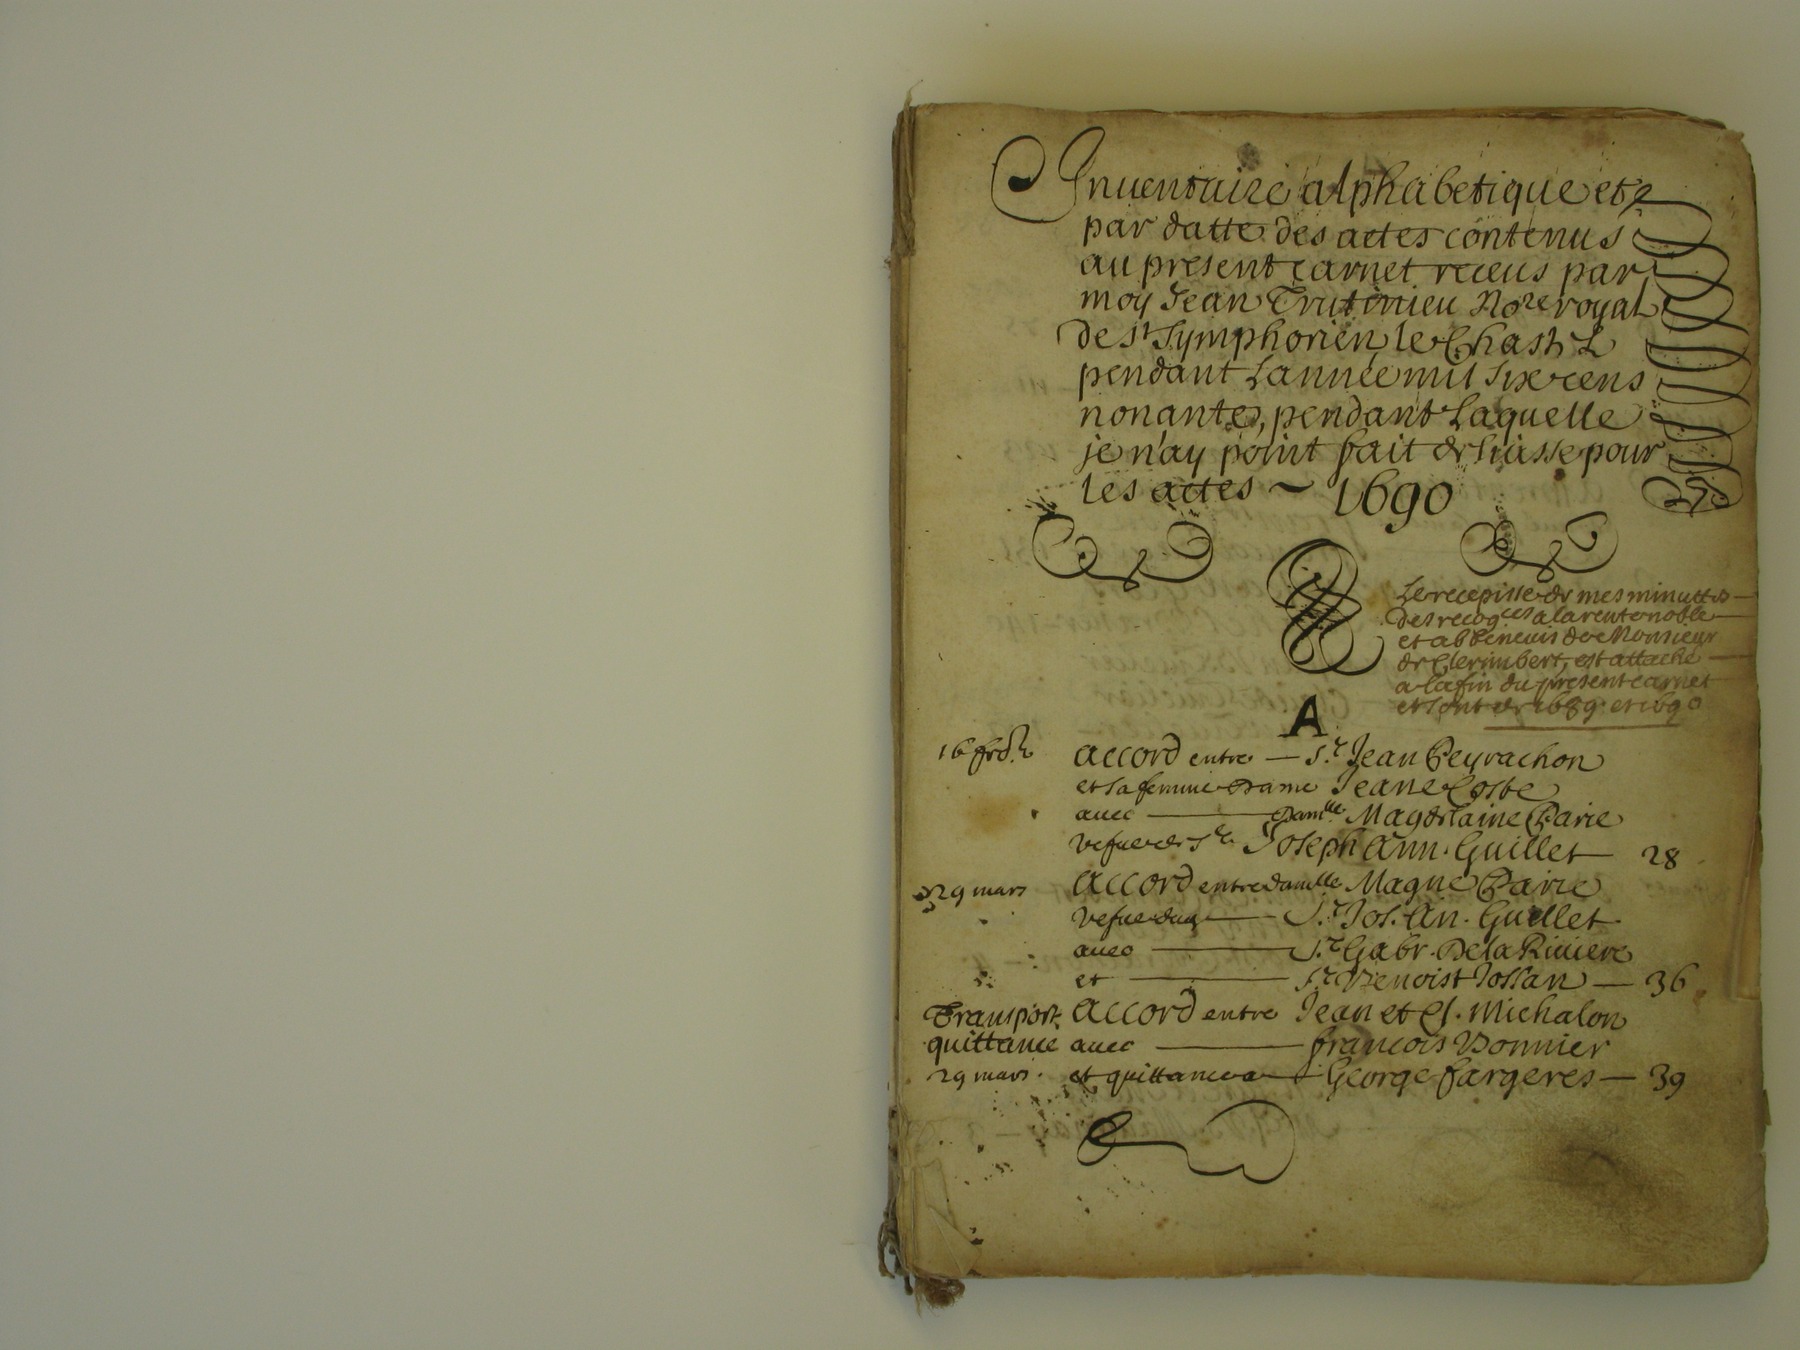 Inuentaire alphabetique et
par datte des actes contenus
au present carnet receus par
moy Jean Trutinieu Nore royal
de St Symphorien le Chastl
pendant Lannée mil six cens
nonante, pendant Laquelle
je n'ay point fait de liasse pour
les actes ~ 1690
Le recepisse de mes minuttes
des recog.ces a la rente noble
et abbeneuis de Monsieur
de Clerimbert, est attaché
a la fin du present carnet
et sont de 1689. et 1690
A
16 accord entre — Sr. Jean Peyrachon
et sa femme Dame Jeane Coste
auec — Damlle Magdelaine Parie
vefue de Sr Joseph Ann. Guillet — 28
29 mars accord entre damlle Magne Parie
vefue dud — Sr. Jos. An. Guillet
auec — Sr Gabr. De la Riuiere
et — Sr Benoist Jossan — 36
Transport accord entre Jean et Cl. Michalon
quittance auec — francois Bonnier
29 mars. et quittance a George fargeres — 39